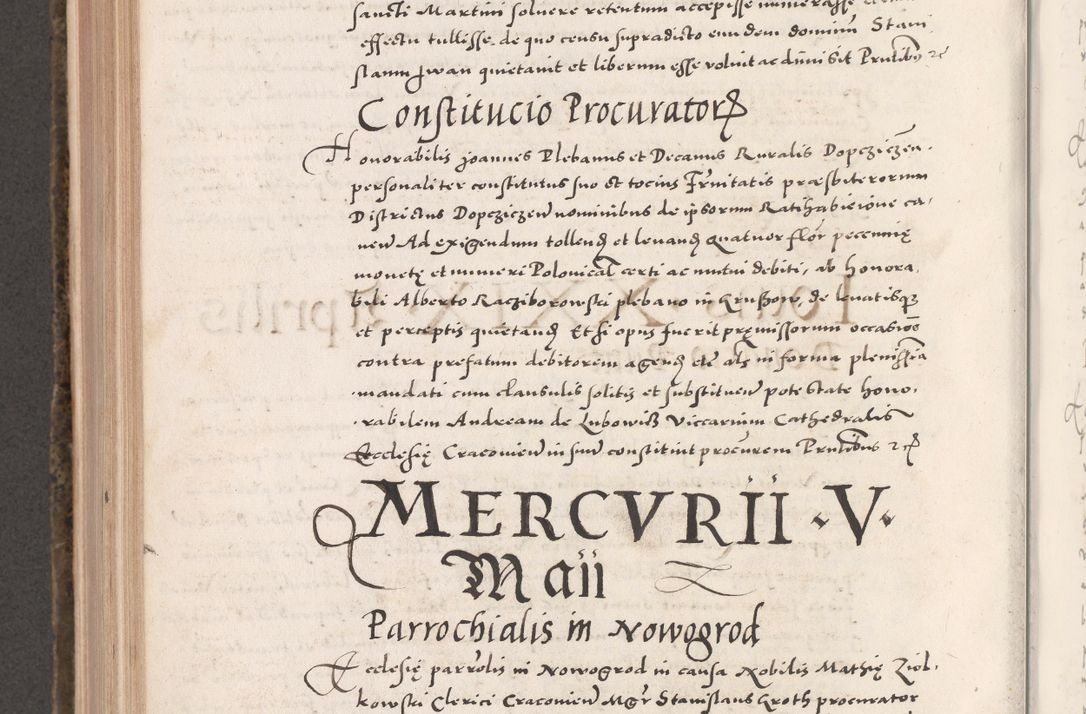 sancti Martini soluere retentum accepisse numerasse
effectu tullisse, de quo censu supradicto eundem dominum Stani
slaum Jwan quietauit et liberum esse voluit ac dimisit Prntibus etc
Constitucio Procurator
Honorabilis Joannes Plebanus et Decanus Ruralis Dopcziczen.
personaliter constitutus suo et tocius Frnitatis præsbiterorum
Districtus Dopcziczen nominibus de ipsorum Ratihabicione ca,
uen Ad exigendum tollend et leuand quatuor flor pecunię
monetę et numeri Polonical certi ac mutui debiti, ab honora,
bili Alberto Racziborowski plebano in Grußow, de leuatisque
et perceptis quietand Et si opus fuerit pręmissorum occasione
contra prefatum debitorem agend etc als in forma plenissima
mandati cum clausulis solitis et substituen potestate hono,
rabilem Andream de Lubowiß Viccarium Cathedralis
Ecclesię Cracouien in suum constituit procurem Prntibus etc
MERCVRII · V ·
Maii
Parrochialis in Nowogrod
Ecclesię parrolis in Nowogrod in causa Nobilis Mathię Ziol,
kowski Clerici Cracouien Mgr Stanislaus Groth procurator